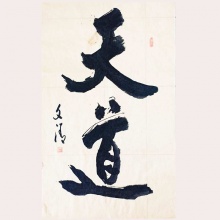 天道
文清